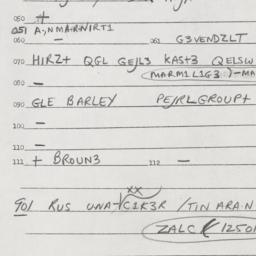 050 +
051 A-,NMARNIRT1
060 — 061 G3VENDZLT
070 HIRZ+ QGL GEJL3 KAS+3 QELSW
(MARM1L1G3:)-MA
080 —
090 GLE BARLEY PEJRLGROUP+
100 —
110 —
111 + BROUN3 112 —
XX
901 RUS UNA-C1K3R /TIN ARA·N
ZALC 1250